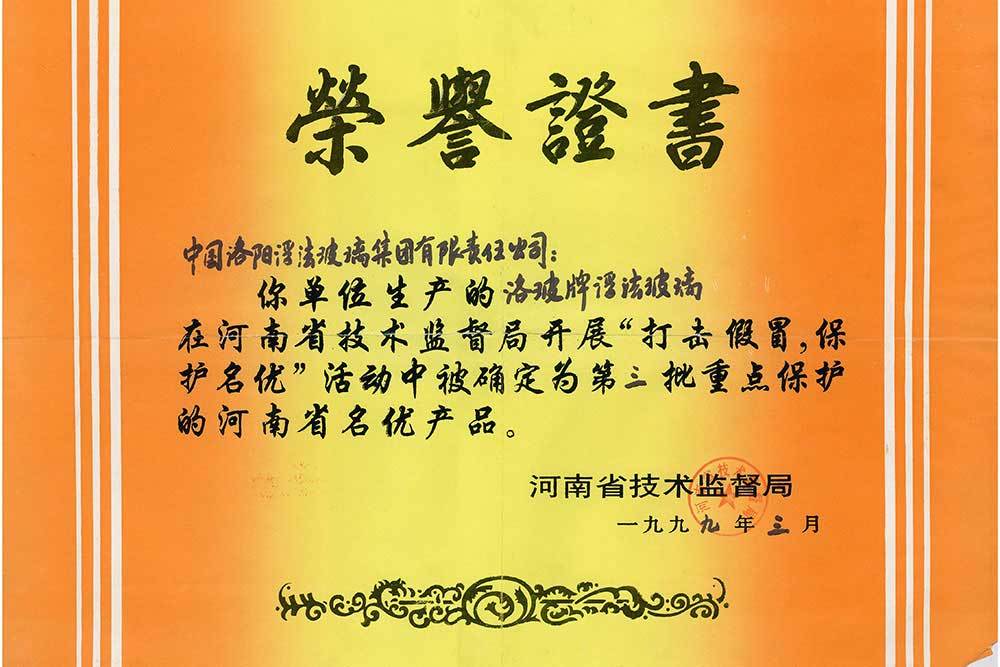 榮譽證書
中国洛阳浮法玻璃集团有限责任公司：
你单位生产的洛玻牌浮法玻璃
在河南省技术监督局开展“打击假冒，保
护名优”活动中被确定为第三批重点保护
的河南省名优产品。
河南省技术监督局
一九九九年三月